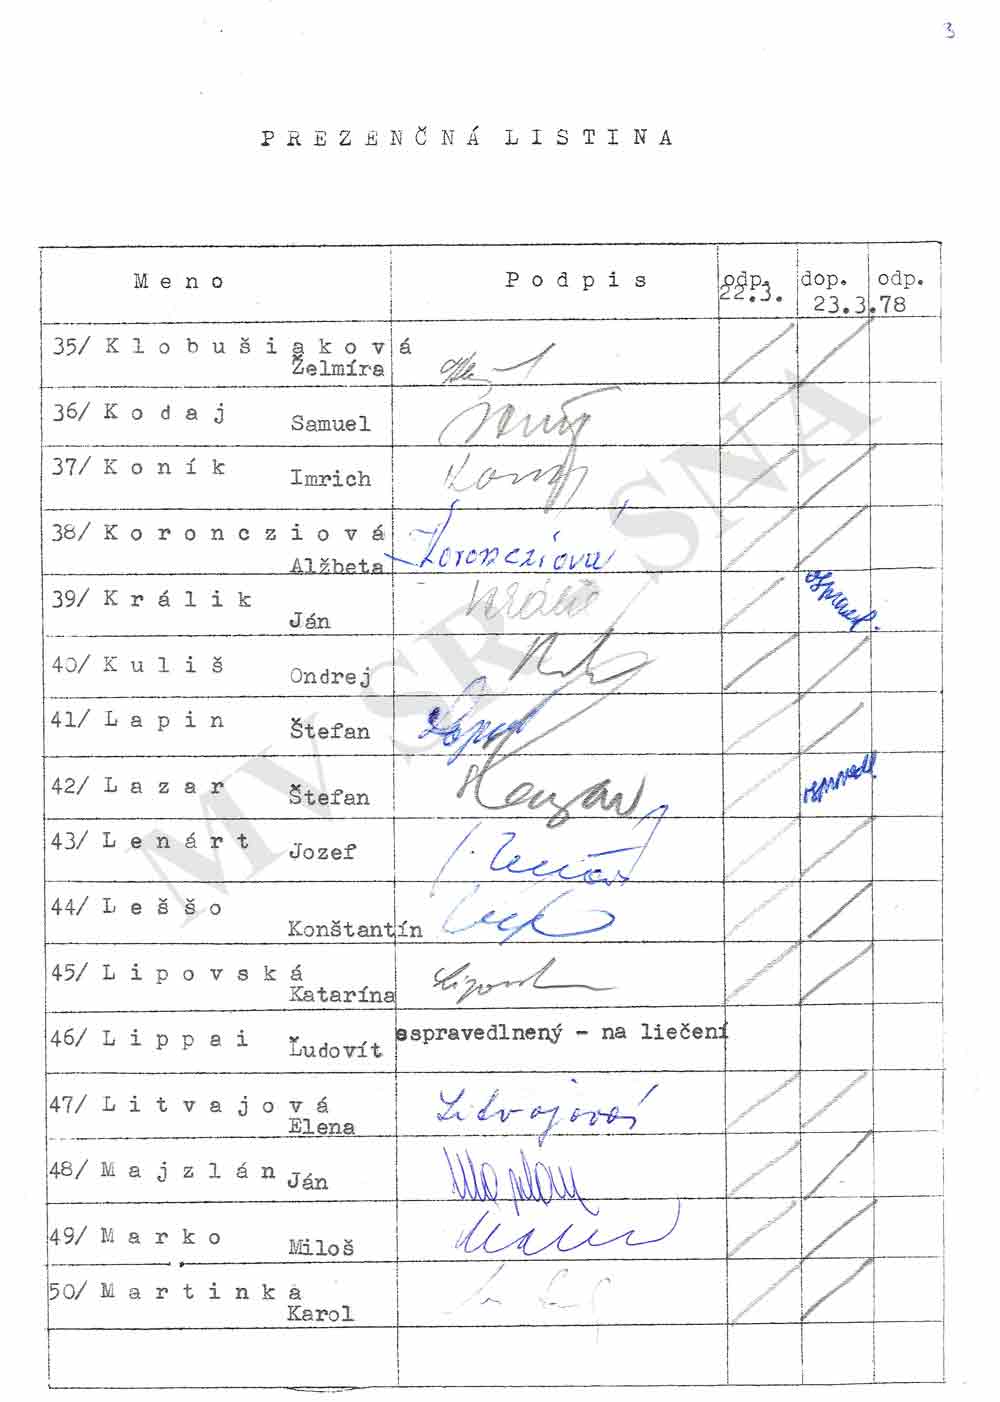 3
PREZENČNÁ LISTINA
Meno Podpis odp. dop. odp.
22.3. 23.3.78
35/ Klobušiaková
Želmíra
36/ Kodaj
Samuel
37/ Koník
Imrich
38/ Koroncziová
Alžbeta Koroncziová
39/ Králik ospravedl.
Ján Králik
40/ Kuliš
Ondrej
41/ Lapin
Štefan
42/ Lazar ospravedl
Štefan
43/ Lenárt
Jozef
44/ Leššo
Konštantín
45/ Lipovská
Katarína
46/ Lippai ospravedlnený - na liečení
Ľudovít
47/ Litvajová
Elena Litvajová
48/ Majzlán
Ján
49/ Marko
Miloš
50/ Martinka
Karol
MV SR SNA